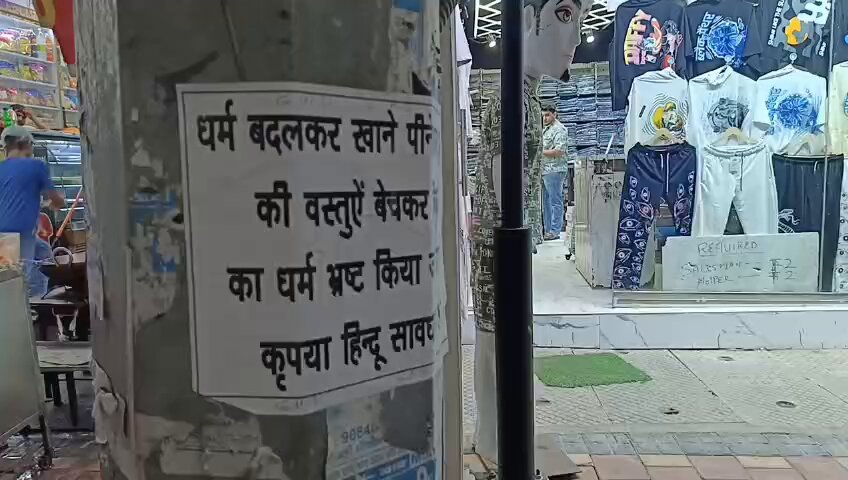 धर्म बदलकर खाने पीने
की वस्तुऐं बेचकर
का धर्म भ्रष्ट किया
कृपया हिन्दू
REQUIRED
SALESMAN - 2
HELPER 2